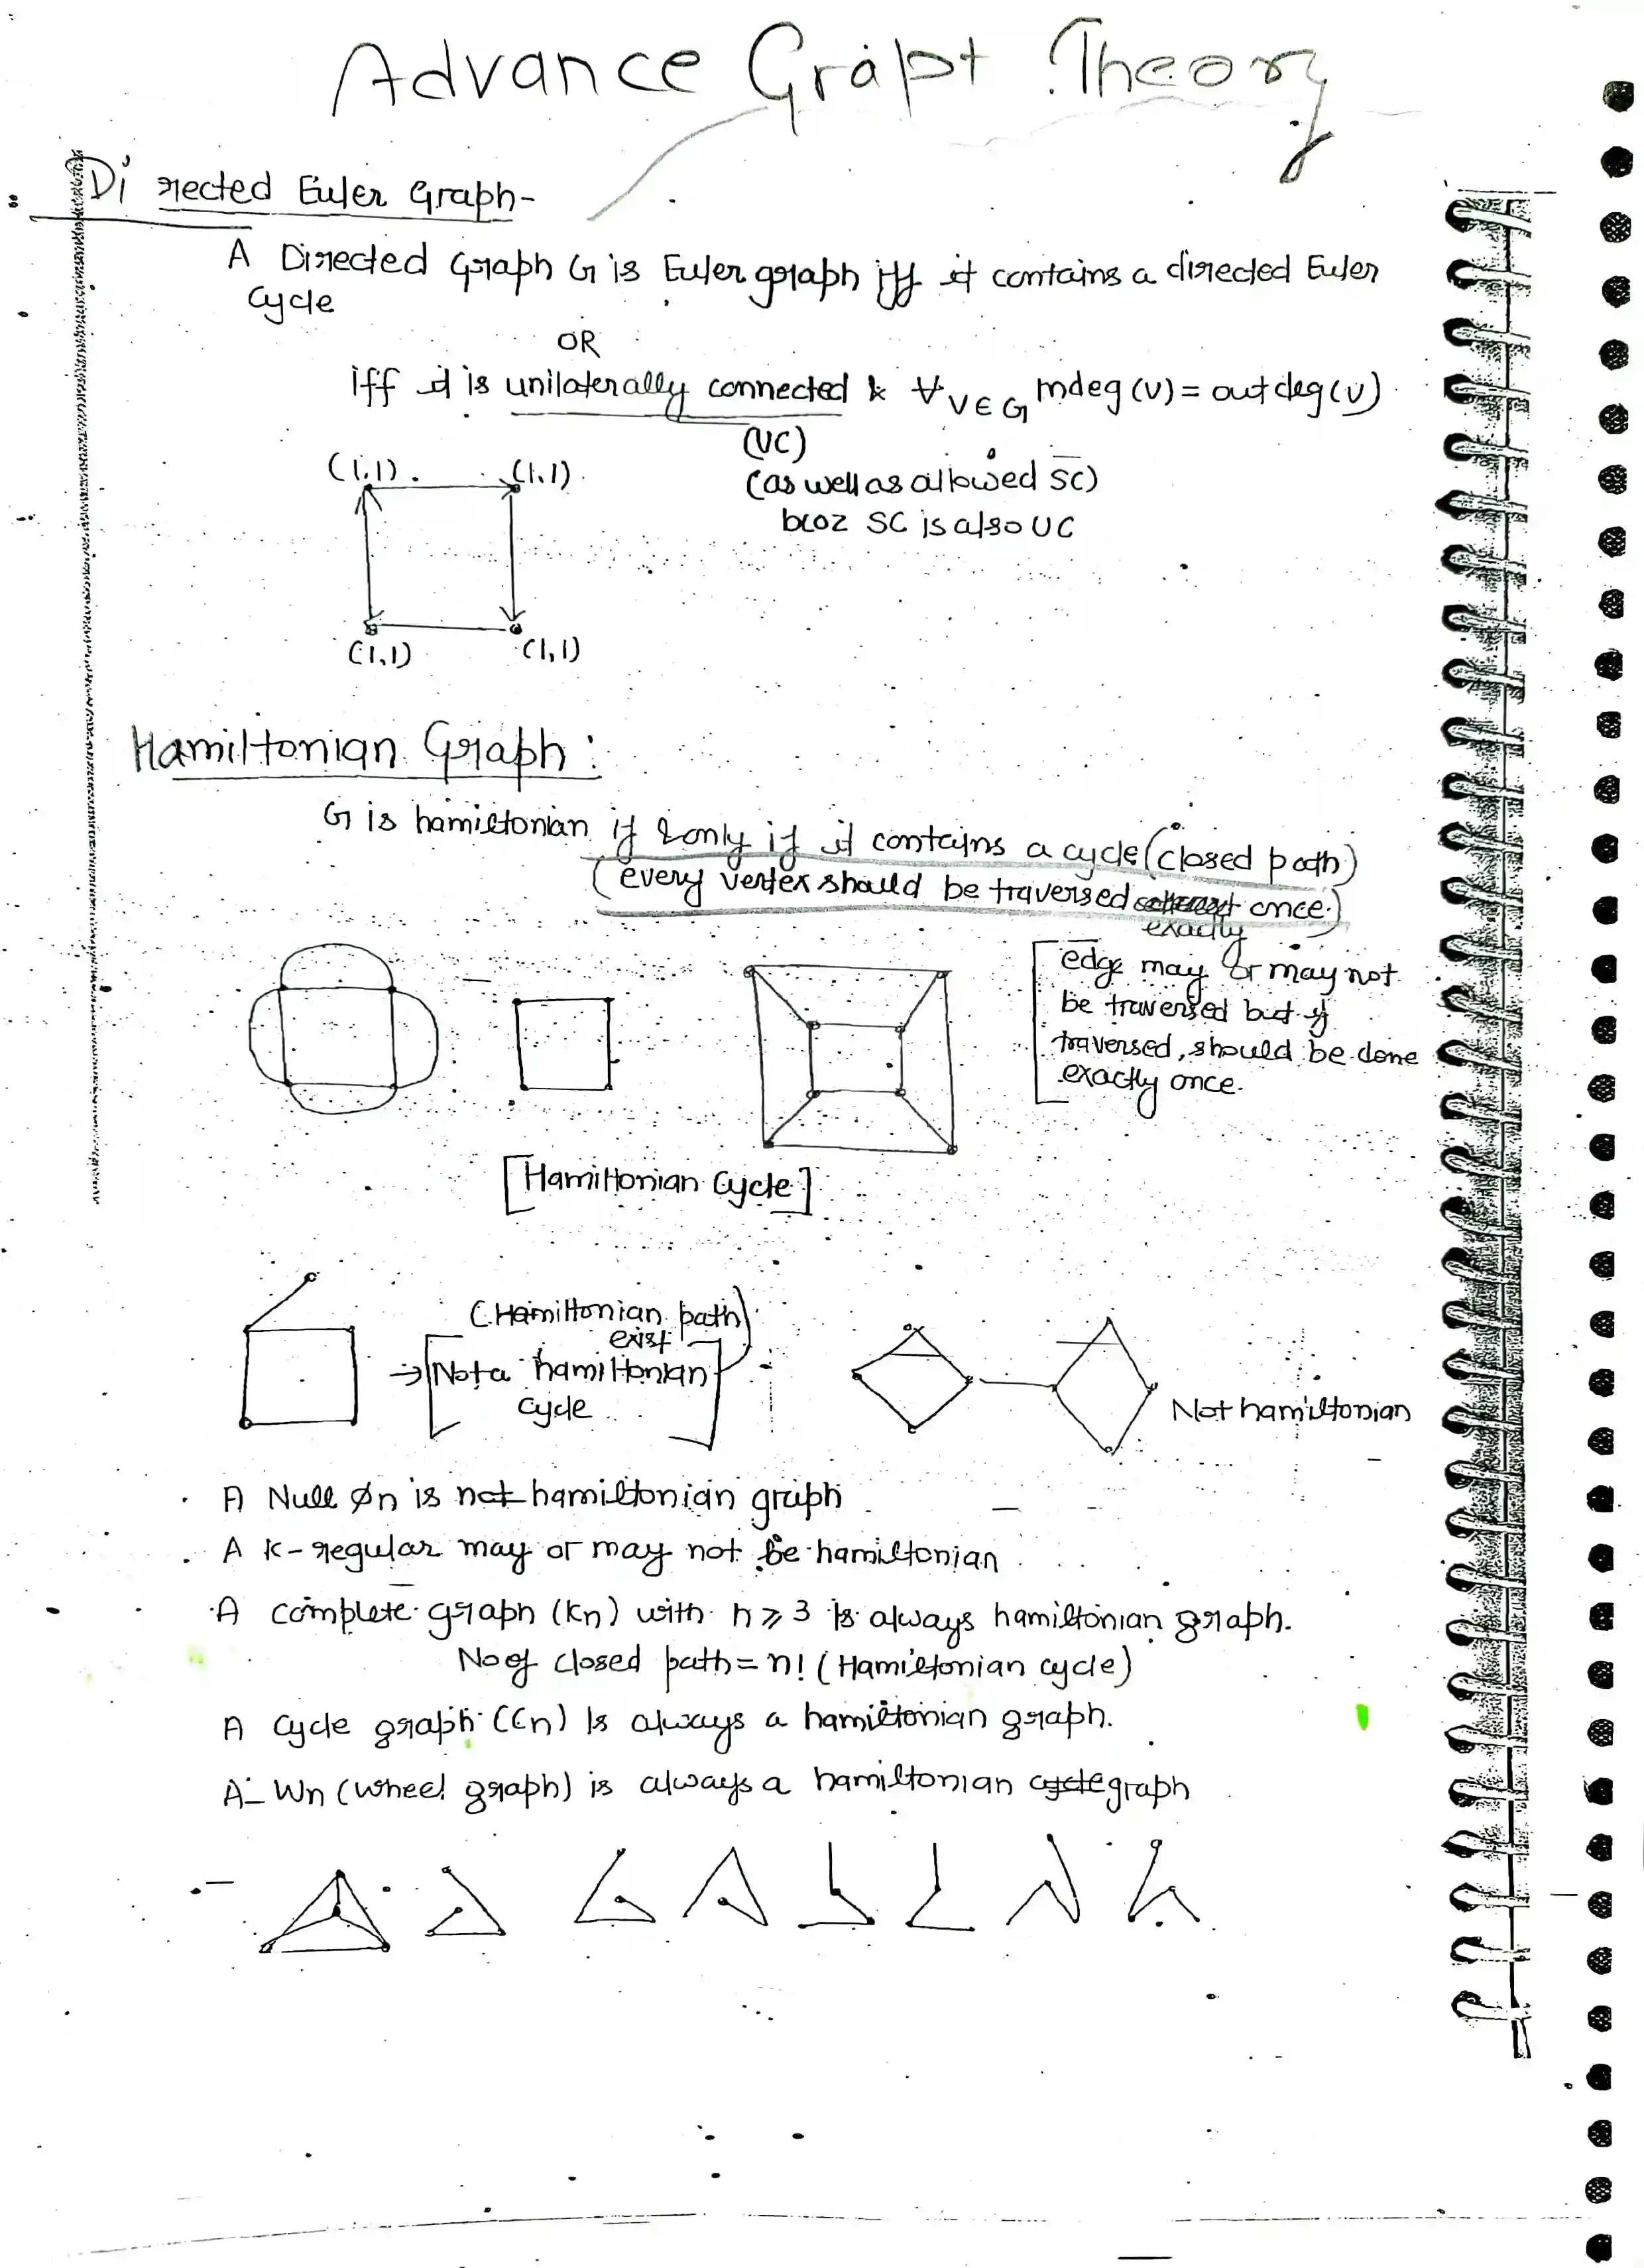 Advance Grapt Theory
Directed Euler Graph-
A Directed Graph G is Euler graph iff it contains a directed Euler
Cycle
OR
iff it is unilaterally connected & ∀ V∈G indeg(v) = outdeg(v)
(UC)
(1,1) (1,1) (as well as allowed SC)
bcoz SC is also UC
(1,1) (1,1)
Hamiltonian Graph:
G is hamiltonian if & only if it contains a cycle (closed path)
(every vertex should be traversed once.)
exactly
edge may or may not
be traversed but if
traversed, should be done
exactly once.
[Hamiltonian Cycle]
(Hamiltonian path)
exist
→ [Not a hamiltonian
cycle]
Not hamiltonian
. A Null Øn is not hamiltonian graph
. A K-regular may or may not be hamiltonian
. A complete graph (Kn) with n ⩾ 3 is always hamiltonian graph.
No of closed path = n! (Hamiltonian cycle)
A Cycle graph (Cn) is always a hamiltonian graph.
A Wn (wheel graph) is always a hamiltonian cycle graph